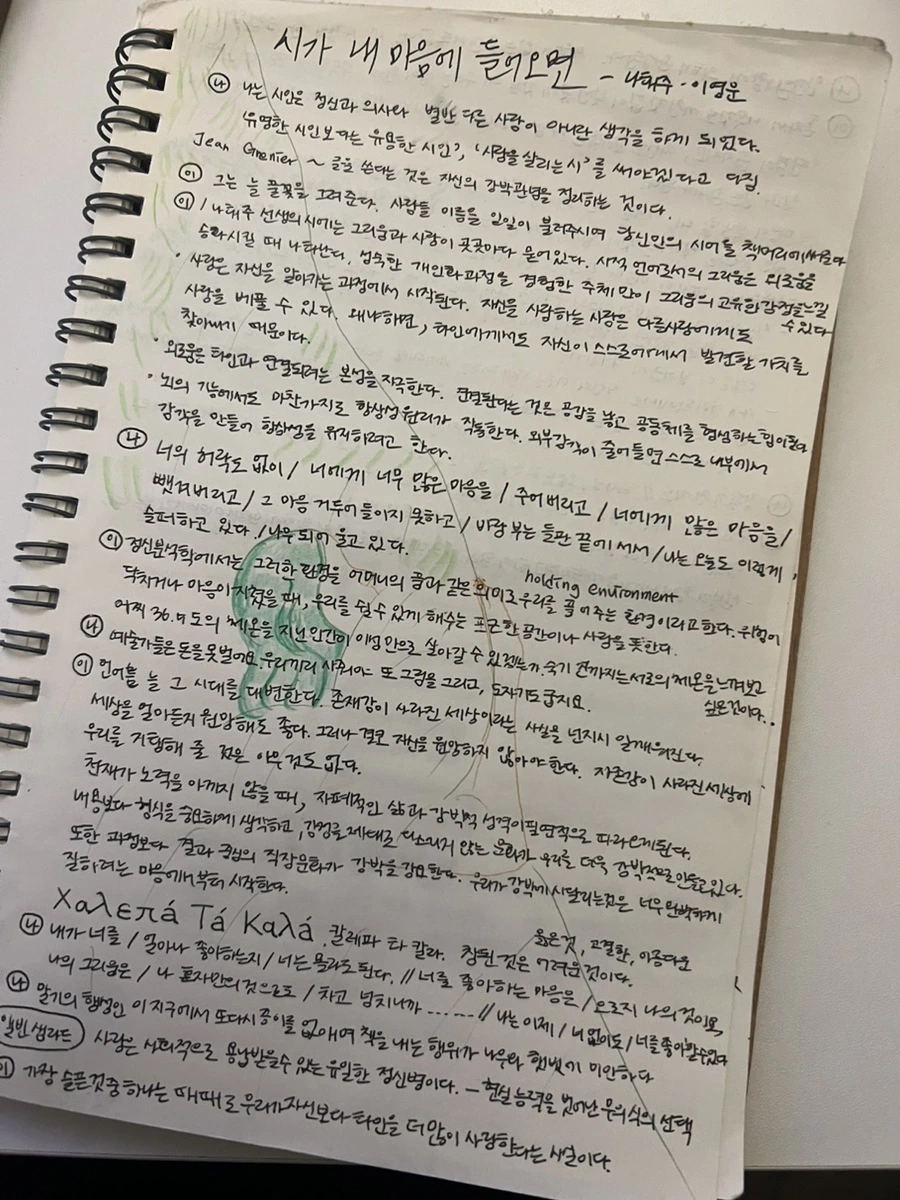 시가 내 마음에 들어오면 - 나태주·이영문
㉯ 나는 시인은 정신과 의사와 별반 다른 사람이 아니란 생각을 하게 되었다.
'유명한 시인보다는 유용한 시인', '사람을 살리는 시'를 써야겠다고 다짐.
Jean Grenier ~ 글을 쓴다는 것은 자신의 강박관념을 정리하는 것이다.
㉧ 그는 늘 풀꽃을 그려준다. 사람들 이름을 일일이 불러주시며 당신만의 시어를 책머리에
㉧ / 나태주 선생의 시에는 그리움과 사랑이 곳곳마다 묻어있다. 시적 언어로서의 그리움은 외로움을
승화시킬 때 나타난다. 성숙한 개인화 과정을 경험한 주체만이 그리움의 고유한 감정을 느낄 수 있다
· 사랑은 자신을 알아가는 과정에서 시작된다. 자신을 사랑하는 사람은 다른 사람에게도
사랑을 베풀 수 있다. 왜냐하면, 타인에게서도 자신이 스스로에게서 발견할 가치를
찾아내기 때문이다.
· 외로움은 타인과 연결되려는 본성을 자극한다. 연결된다는 것은 공감을 낳고 공동체를 형성하는 힘이 된다
· 뇌의 기능에서도 마찬가지로 항상성 원리가 작동한다. 외부감각이 줄어들면 스스로 내부에서
감각을 만들어 항상성을 유지하려고 한다.
㉯ 너의 허락도 없이 / 너에게 너무 많은 마음을 / 주어버리고 / 너에게 많은 마음을 /
뺏겨버리고 / 그 마음 거두어들이지 못하고 / 바람 부는 들판 끝에 서서 / 나는 오늘도 이렇게,
슬퍼하고 있다 / 나무 되어 울고 있다.
holding environment
㉧ 정신분석학에서는 그러한 환경을 어머니의 품과 같은 의미로 우리를 품어주는 환경이라고 한다. 위험이
닥치거나 마음이 지쳤을 때, 우리를 쉴 수 있게 해주는 포근한 공간이나 사람을 뜻한다.
어찌 36.5도의 체온을 지닌 인간이 이성만으로 살아갈 수 있겠는가. 죽기 전까지는 서로의 체온을 느껴보고 싶은 것이다..
㉯ 예술가들은 돈을 못 벌어요. 우리끼리 사줘야 또 그림을 그리고, 도자기도 굽지요.
㉧ 언어는 늘 그 시대를 대변한다. 존재감이 사라진 세상이라는 사실을 넌지시 일깨워진다.
세상을 얼마든지 원망해도 좋다. 그러나 결코 자신을 원망하지 않아야 한다. 자존감이 사라진 세상에
우리를 지탱해 줄 것은 아무것도 없다.
천재가 노력을 아끼지 않을 때, 자폐적인 삶과 강박적 성격이 필연적으로 따라오게 된다.
내용보다 형식을 중요하게 생각하고, 감정을 제대로 다스리지 않는 문화가 우리를 더욱 강박적으로 만들고 있다.
또한 과정보다 결과 중심의 직장문화가 강박을 강요한다. 우리가 강박에 시달리는 것은 너무 완벽하게
잘하려는 마음에서부터 시작한다.
옳은 것, 고결한, 아름다운
Χαλεπά Τά Καλά. 칼레파 타 칼라. 참된 것은 어려운 것이다.
㉯ 내가 너를 / 얼마나 좋아하는지 / 너는 몰라도 된다. // 너를 좋아하는 마음은 / 오로지 나의 것이요,
나의 그리움은 / 나 혼자만의 것으로도 / 차고 넘치니까 ...... // 나는 이제 / 너 없이도 / 너를 좋아할 수 있다
㉯ 말기의 행성인 이 지구에서 또다시 종이를 없애며 책을 내는 행위가 나무와 햇빛에 미안하다
앨빈 샘라드 사랑은 사회적으로 용납받을 수 있는 유일한 정신병이다. - 현실 능력을 벗어난 무의식의 선택
㉧ 가장 슬픈 것 중 하나는 때때로 우리가 자신보다 타인을 더 많이 사랑한다는 사실이다.